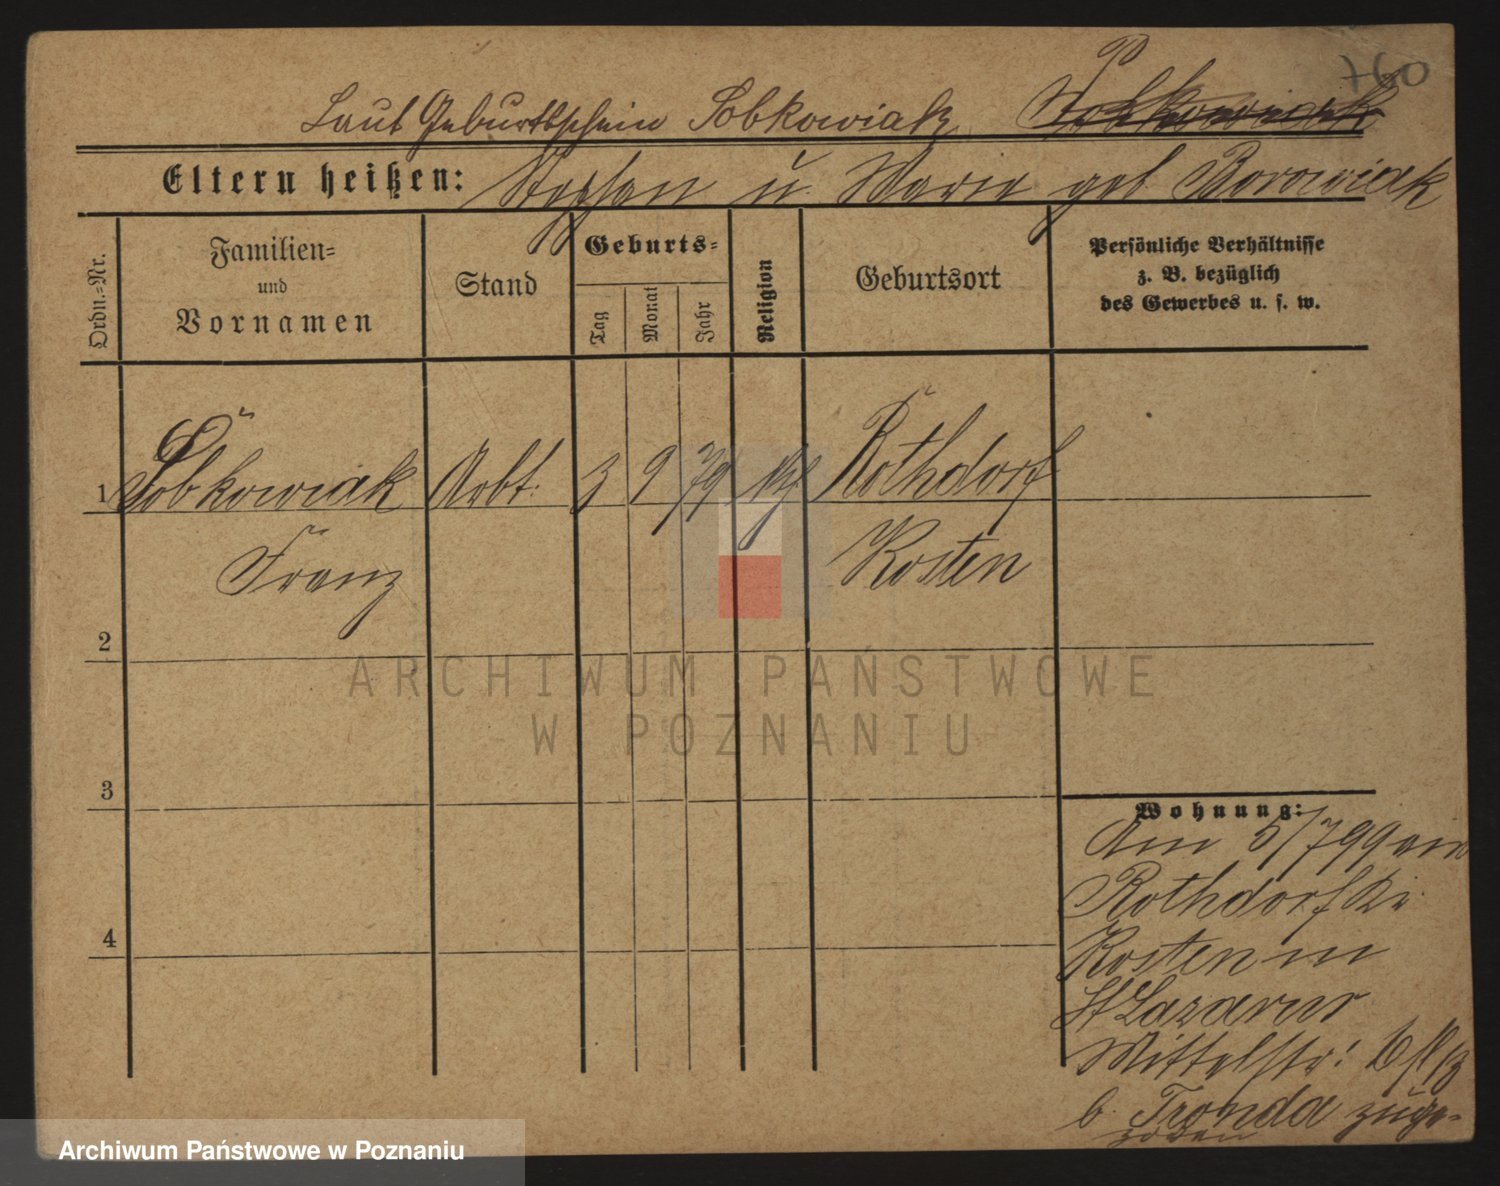 760
Laut Geburtsschein Sobkowiak
Eltern heißen: Stephan u. Marie geb Borowiak
Ordn.-Nr.
Familien-
und
Vornamen
Stand
Geburts-
Tag
Monat
Jahr
Religion
Geburtsort
Persönliche Verhältnisse
z. B. bezüglich
des Gewerbes u. s. w.
1 Sobkowiak Arbt. 3 9 79 Rothdorf
Franz Kosten
2
3
4
Wohnung:
Am 5/7 99 von
Rothdorf Kr.
Kosten in
St Lazarus
Mittelstr:
b. Tronda zuge-
zogen
ARCHIWUM PAŃSTWOWE
W POZNANIU
Archiwum Państwowe w Poznaniu